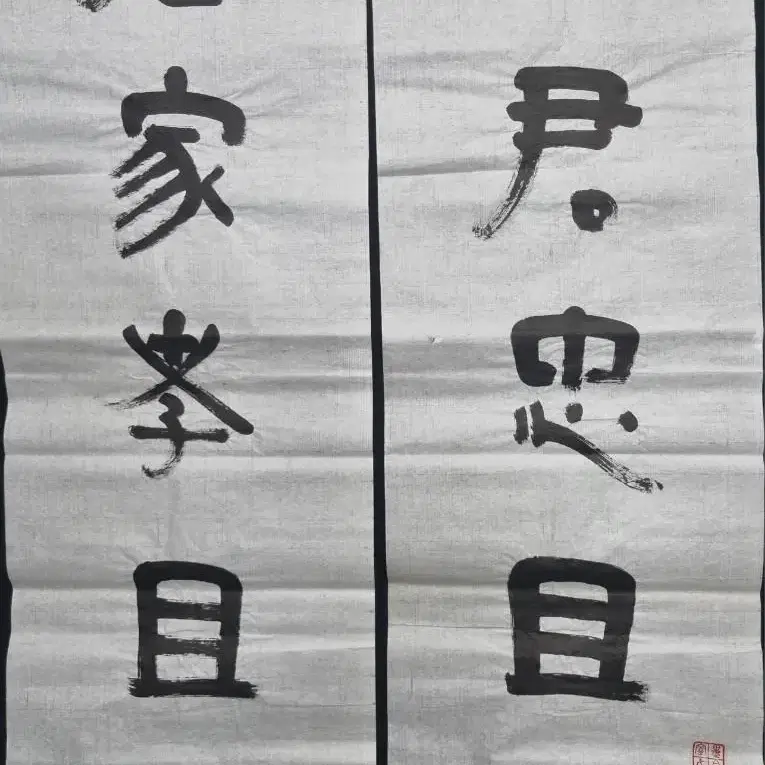 君忠且
家孝且